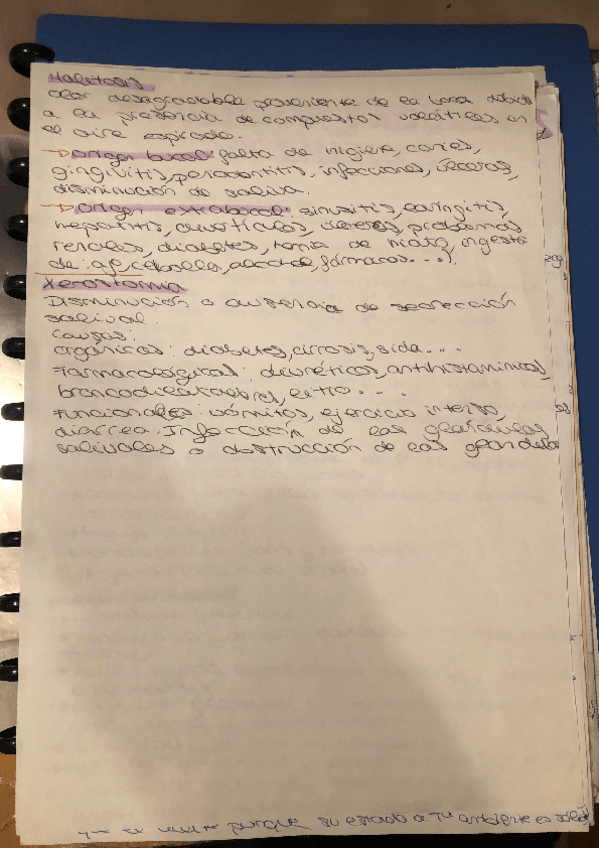 Halitosis
Olor desagradable proveniente de la boca debido
a la presencia de compuestos volátiles en
el aire espirado.
→ Origen bucal: falta de higiene, caries,
gingivitis, periodontitis, infecciones, úlceras,
disminución de saliva.
→ Origen extrabucal: sinusitis, laringitis,
hepatitis, divertículos, úlceras, problemas
renales, diabetes, hernia de hiato, ingesta
de: ajo, cebolla, alcohol, fármacos...).
Xerostomia
Disminución o ausencia de secreción
salival.
Causas:
orgánicas: diabetes, cirrosis, sida...
Farmacológicas: diuréticos, antihistamínicos,
broncodilatadores, litio...
Funcionales: vómitos, ejercicio intenso,
diarrea. Infección de las glándulas
salivales o obstrucción de las glándulas
porque su estado a Tª ambiente es